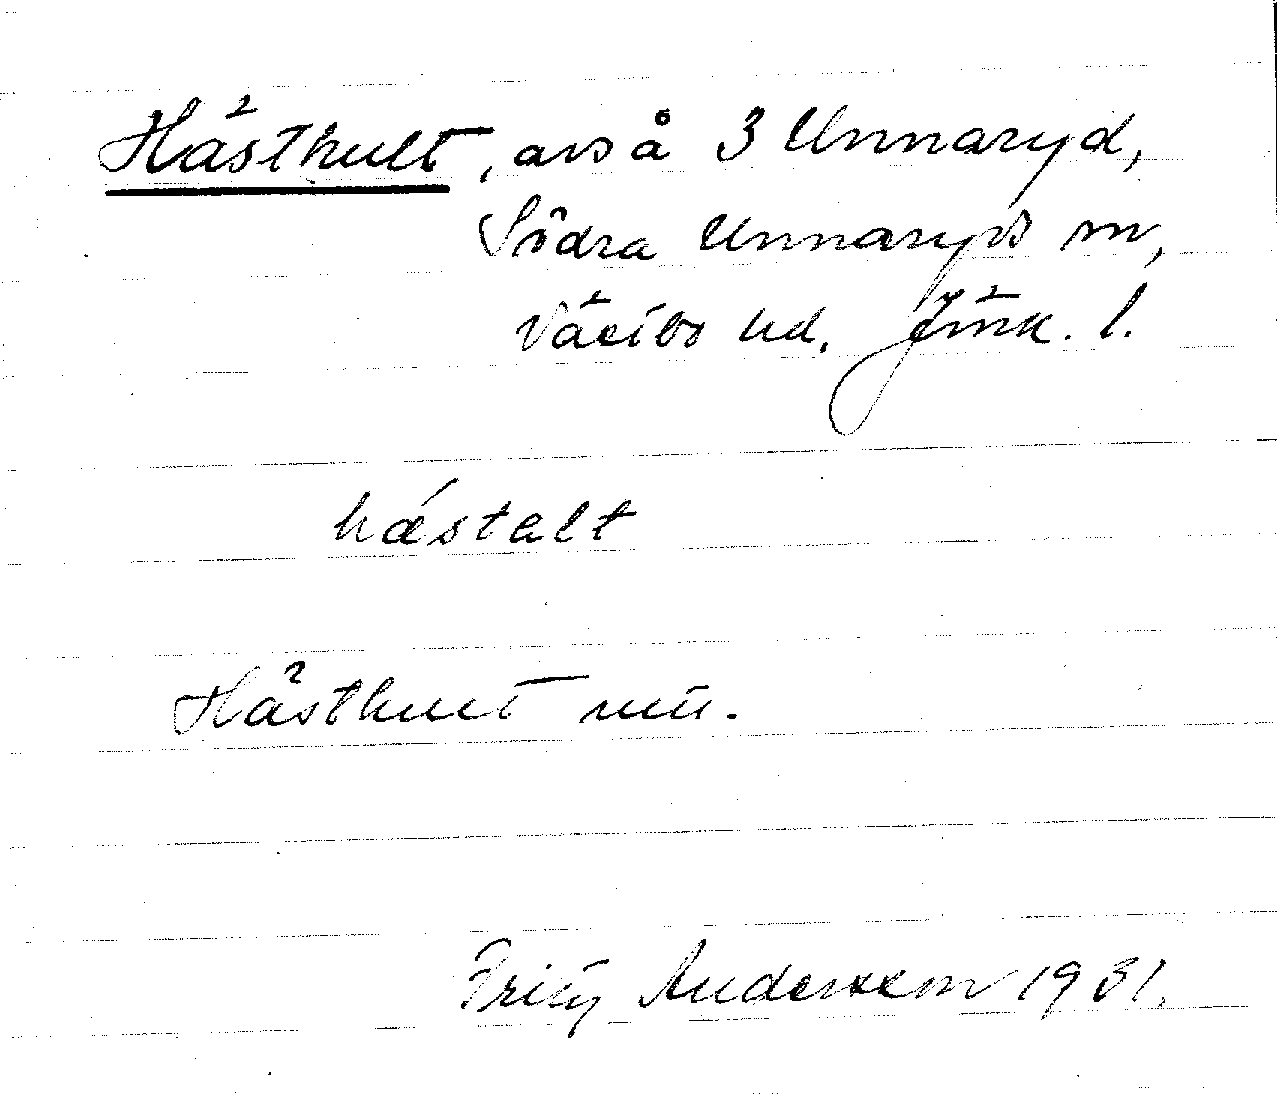 Hästhult, avs å 3 Unnaryd,
Södra Unnaryds sn,
Västbo hd. Jönk. l.
hǽstalt
Hästhult
Fritz Andersson 1931.